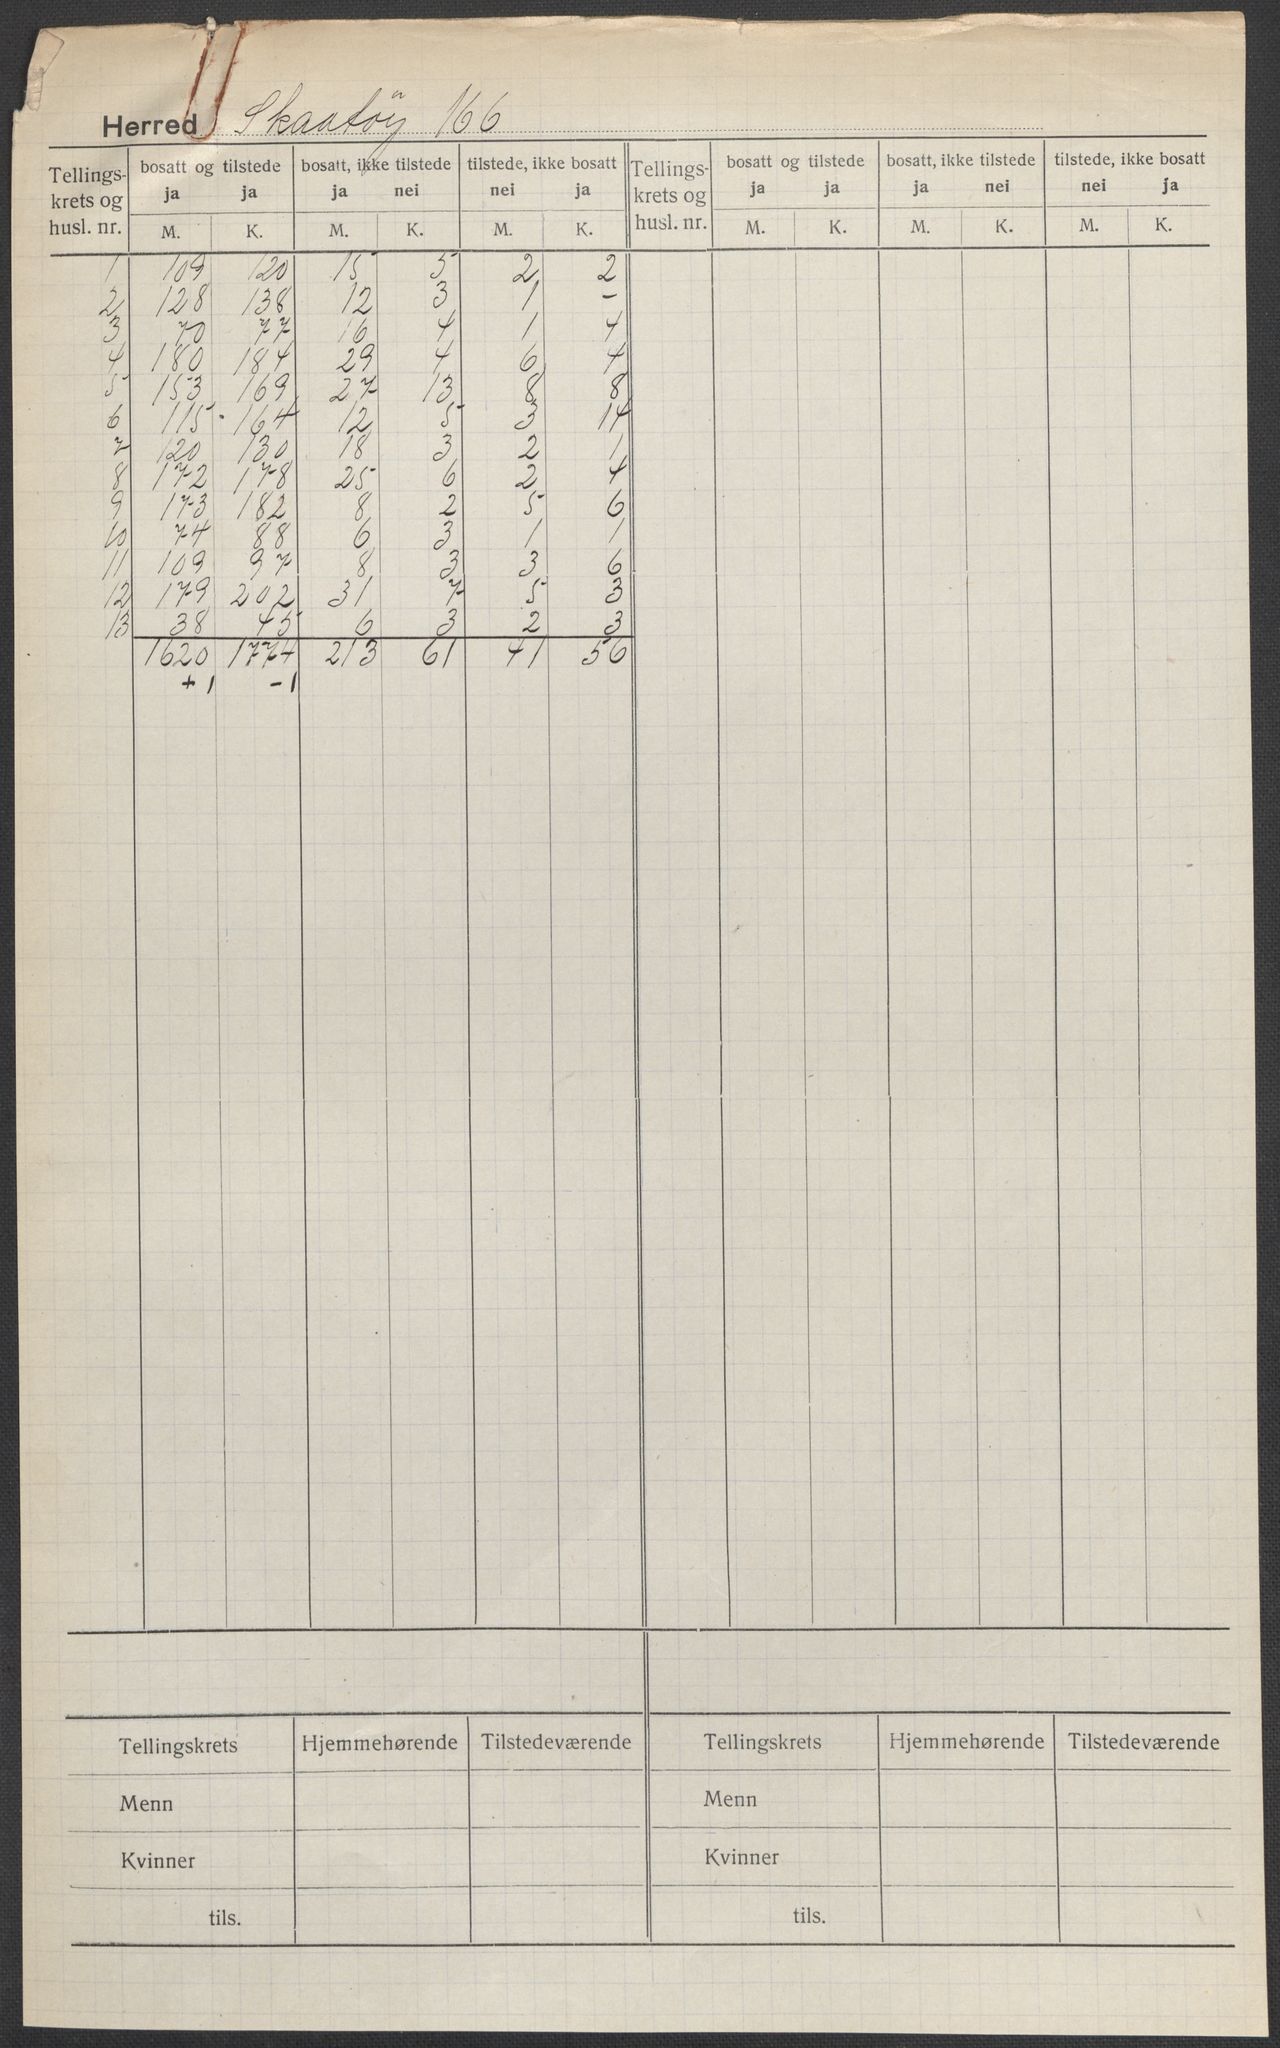 Herred Skaatöy 166
Tellings-krets og husl. nr. | bosatt og tilstede | bosatt, ikke tilstede | tilstede, ikke bosatt | Tellings-krets og husl. nr. | bosatt og tilstede | bosatt, ikke tilstede | tilstede, ikke bosatt
ja ja ja nei nei ja ja ja ja nei nei ja
M. K. M. K. M. K. M. K. M. K. M. K.
1 109 120 15 5 2 2
2 128 138 12 3 1 -
3 70 77 16 4 1 4
4 180 184 29 4 6 4
5 153 169 27 13 8 8
6 115 164 12 5 3 14
7 120 130 18 3 2 1
8 172 178 25 6 2 4
9 173 182 8 2 5 6
10 74 88 6 3 1 1
11 109 97 8 3 3 6
12 179 202 31 7 5 3
13 38 45 6 3 2 3
1620 1774 213 61 41 56
+1 -1
Tellingskrets Hjemmehørende Tilstedeværende Tellingskrets Hjemmehørende Tilstedeværende
Menn Menn
Kvinner Kvinner
tils. tils.